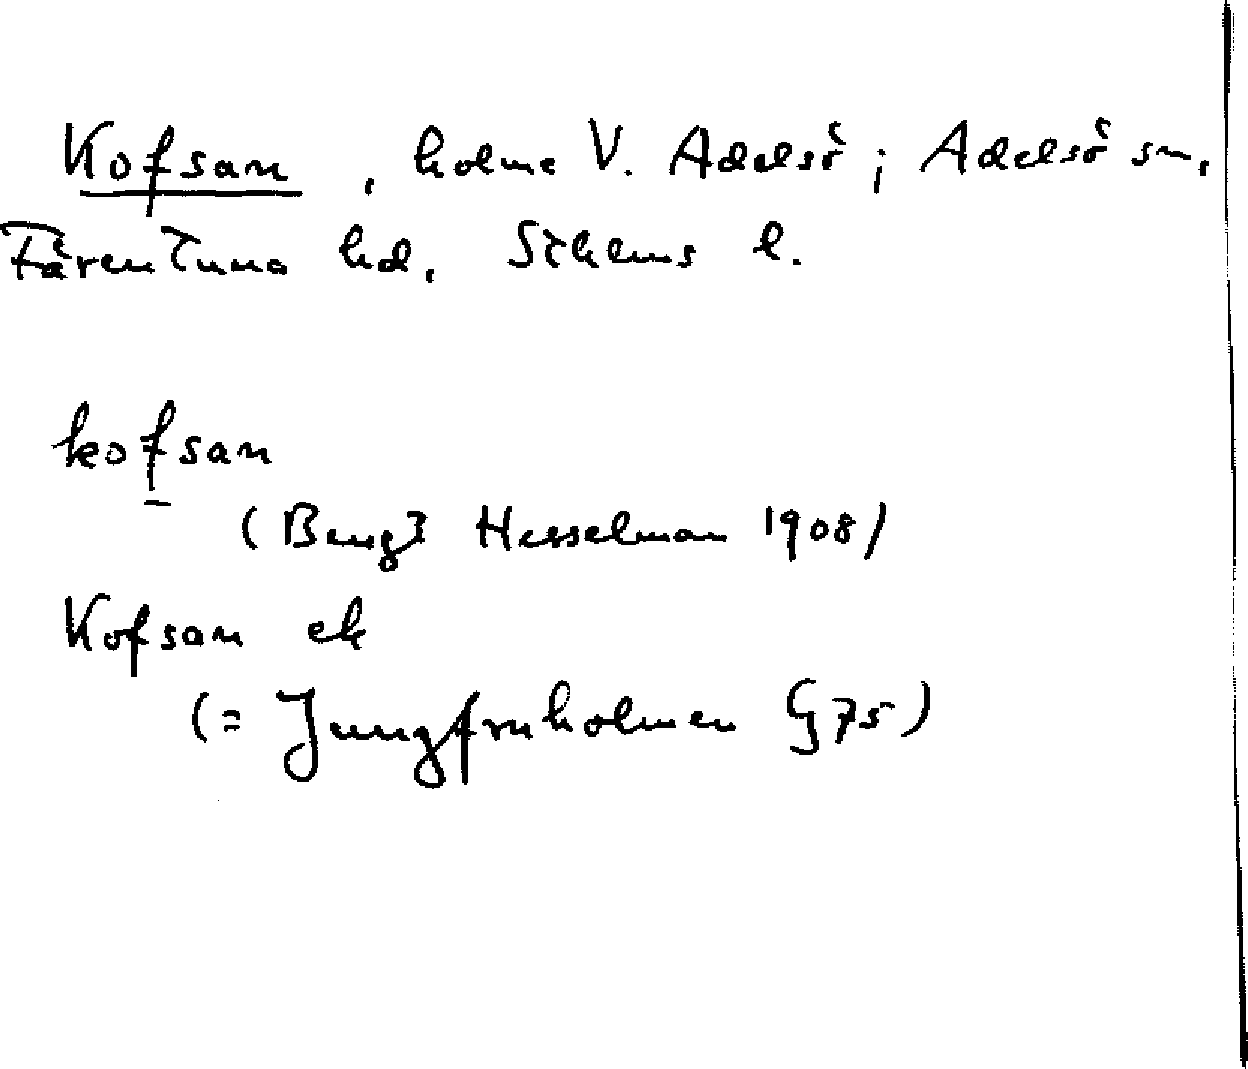 Kofsan, holme V. Adelsö; Adelsö sn,
Färentuna hd, Sthlms l.
kofsan
(Bengt Hesselman 1908)
Kofsan ek
(= Jungfruholmen G 75)